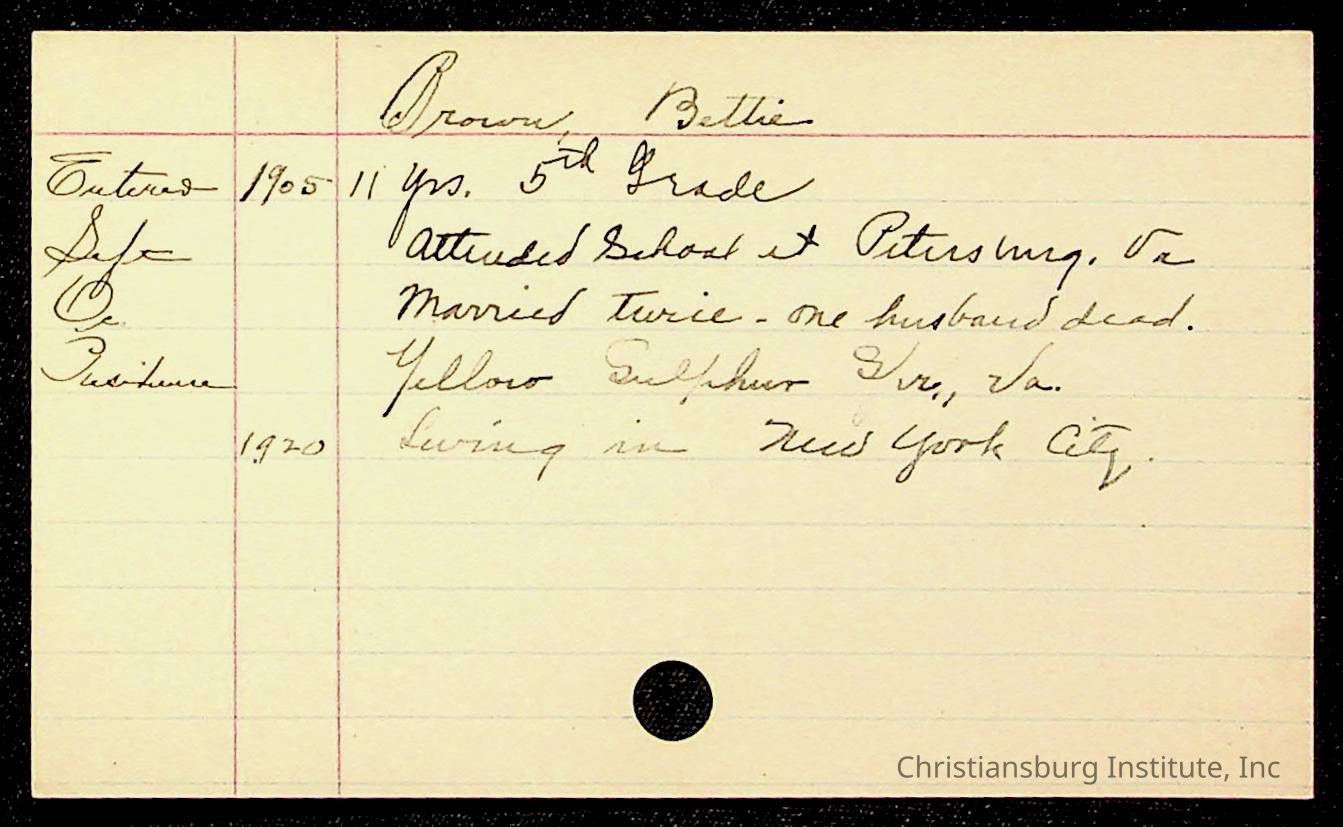 Brown, Bettie
Entered 1905 11 yrs. 5th Grade
Left Attended School at Petersburg, Va
Oc. Married twice - one husband dead.
Residence Yellow Sulphur Spr., Va.
1920 Living in New York City.
Christiansburg Institute, Inc